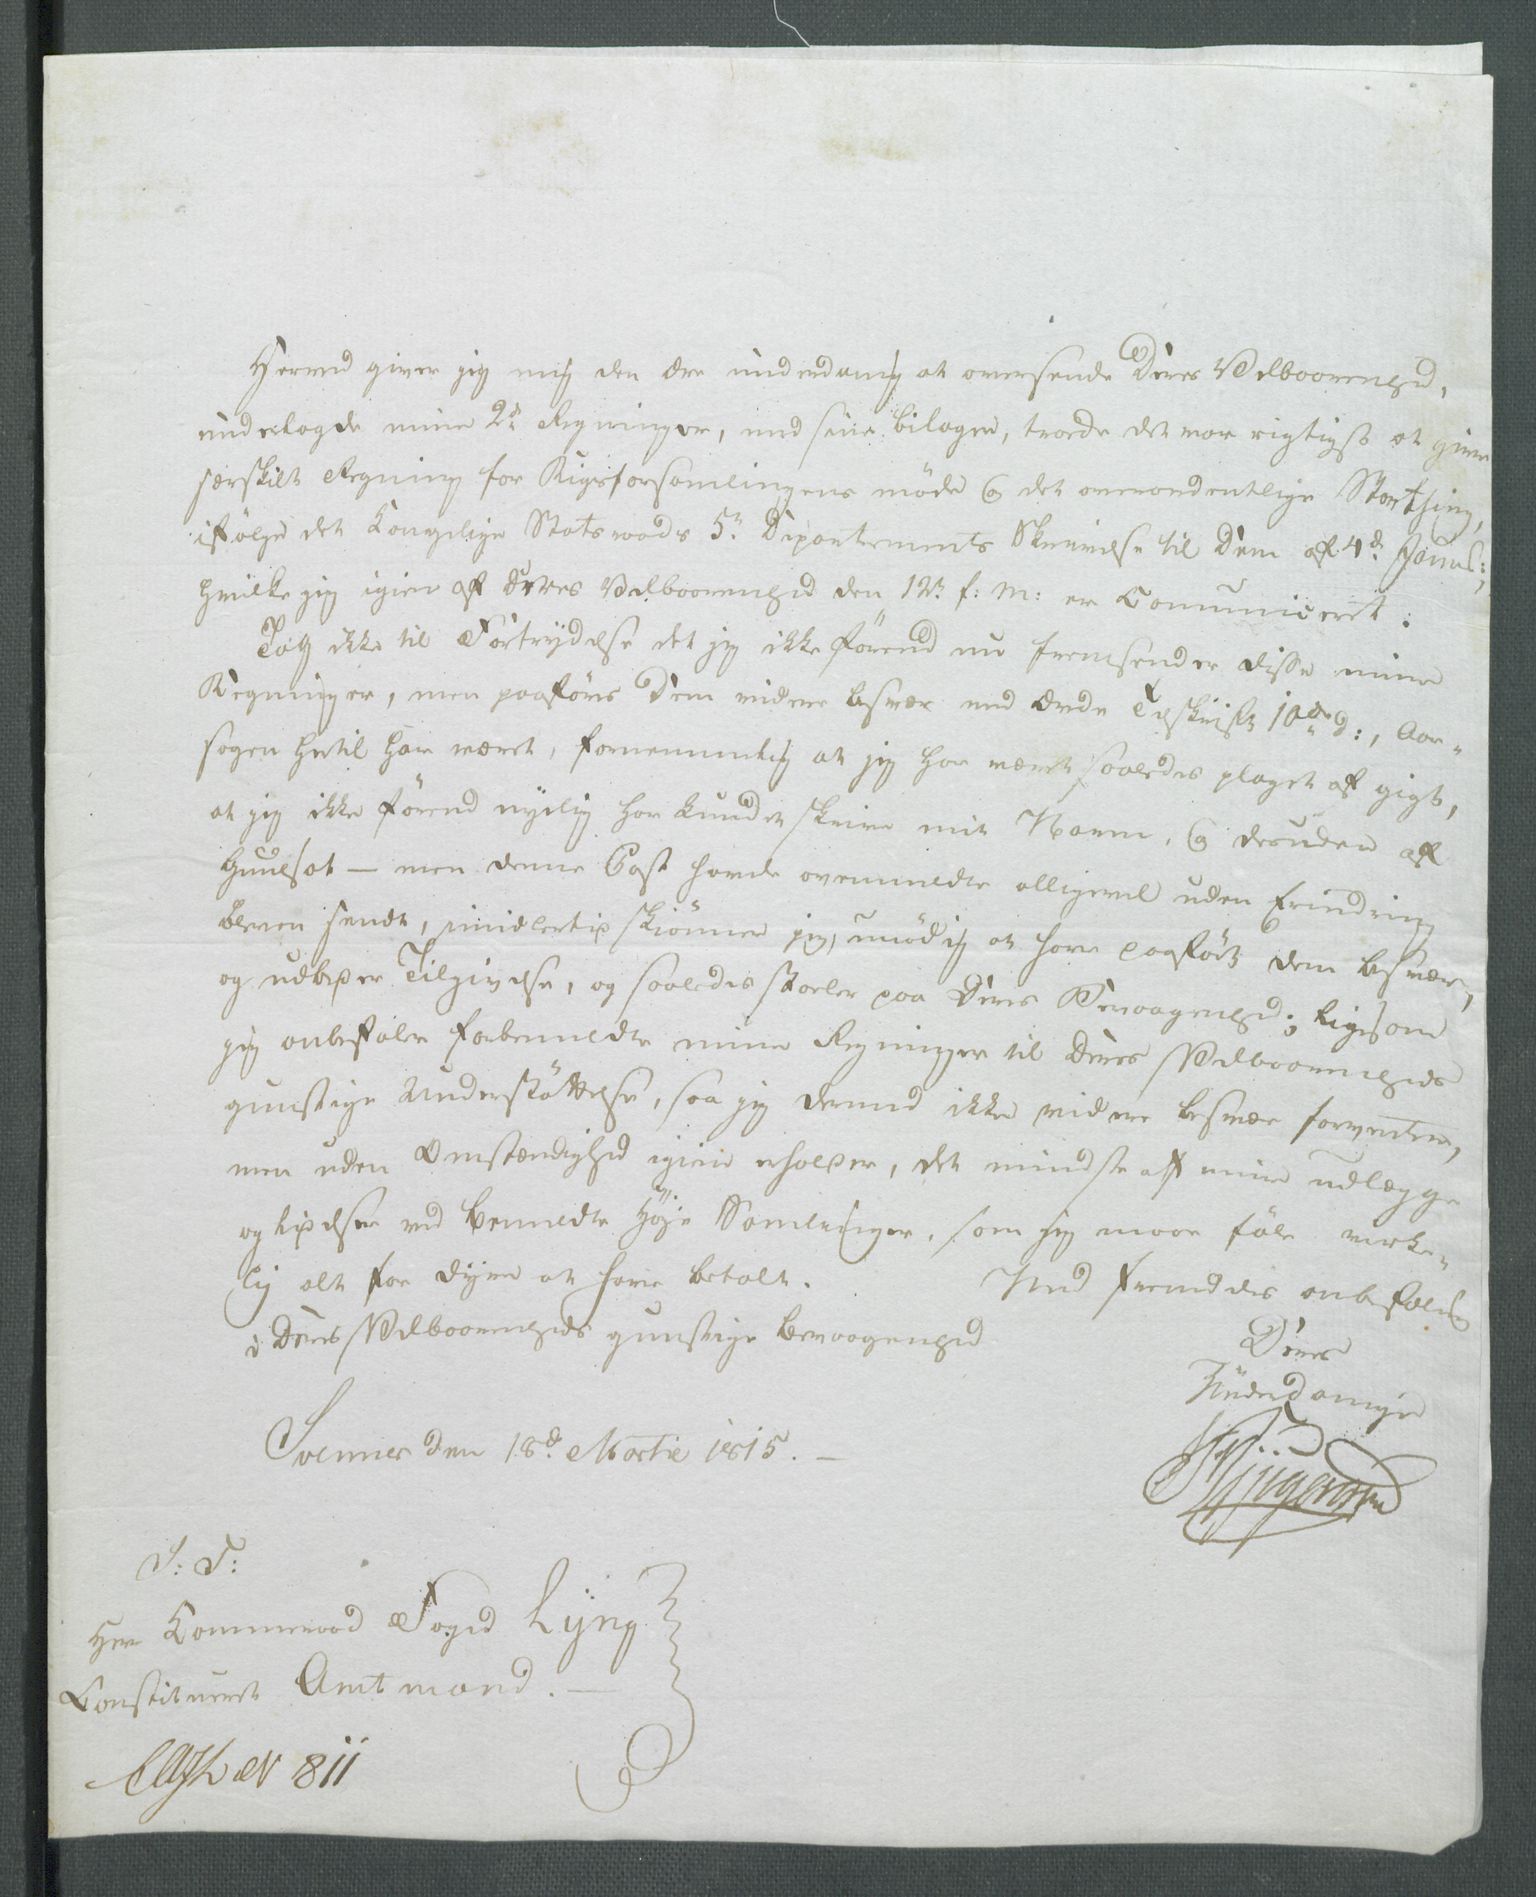 Herved giver jeg mig den ære underdanig at oversende Deres Velbaarenhed,
underlagde mine 2de Regninger, med sine bilager, troede det var rigtigst at give
særskilt Regning for Rigsforsamlingens møde og det overordentlige Storthing,
ifølge det Kongelige Statsraads 5te Departements Skrivelse til Dem af 4de Janu:,
hvilke jeg igien af Deres Velbaarenhed den 12te f: M: er Comuniceret.
Tag ikke til Fortrydelse det jeg ikke førend nu fremsender disse mine
Regninger, men paaføres Dem videre besvær med Deres Tilskrift 10de d:, Aar-
sagen hertil har været, fornemmelig at jeg har været saaledes plaget af gigt,
at jeg ikke førend nylig har kundet skrive mit Navn, og desuden af
Guulsot — men denne Post havde ovenmeldte alligevel uden Erindring
bleven sendt, imidlertid skiønner jeg, unødig at have paaført dem besvær,
og udbeder Tilgivelse, og saaledes stoeler paa Deres Bevaagenhed; ligesom
jeg anbefaler forbemeldte mine Regninger til Deres Velbaarenheds
gunstige Understøttelse, saa jeg derved ikke videre besvær forventer,
men uden Omstændighed igien erholder, det mindste af mine udlægge
og lidelser ved bemeldte Høje Samlinger, som jeg maae føle virke-
lig alt for dyre at have betalt. Med fremdeles anbefaling
i Deres Velbaarenheds gunstige bevaagenhed
Deres
Underdanige
den 18de Martii 1815. —
S: T:
Herr Kammerraad Foged Lyng
Constitueret Amtmand. —
N 811